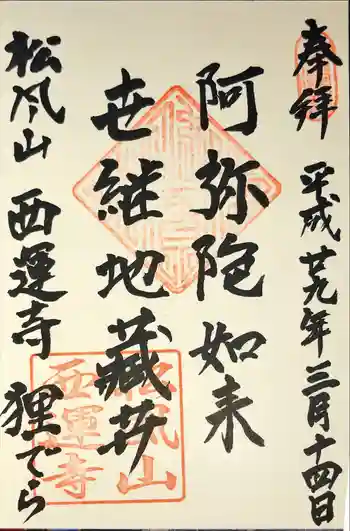 奉拝 平成廿九年三月十四日
阿弥陀如来
世継地蔵尊
松風山 西運寺 狸でら
松風山
西運寺